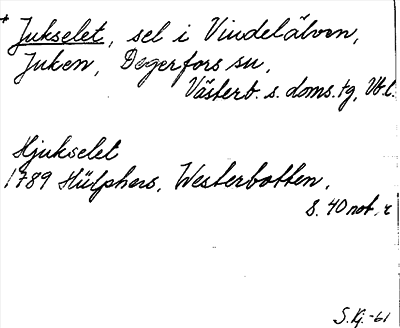 + Jukselet, sel i Vindelälven,
Juken, Degerfors sn,
Västerb. s. doms.tg, Vb.l.
Hjukselet
1789 Hülphers, Westerbotten,
S. 40 not, r
S. Kj. -61